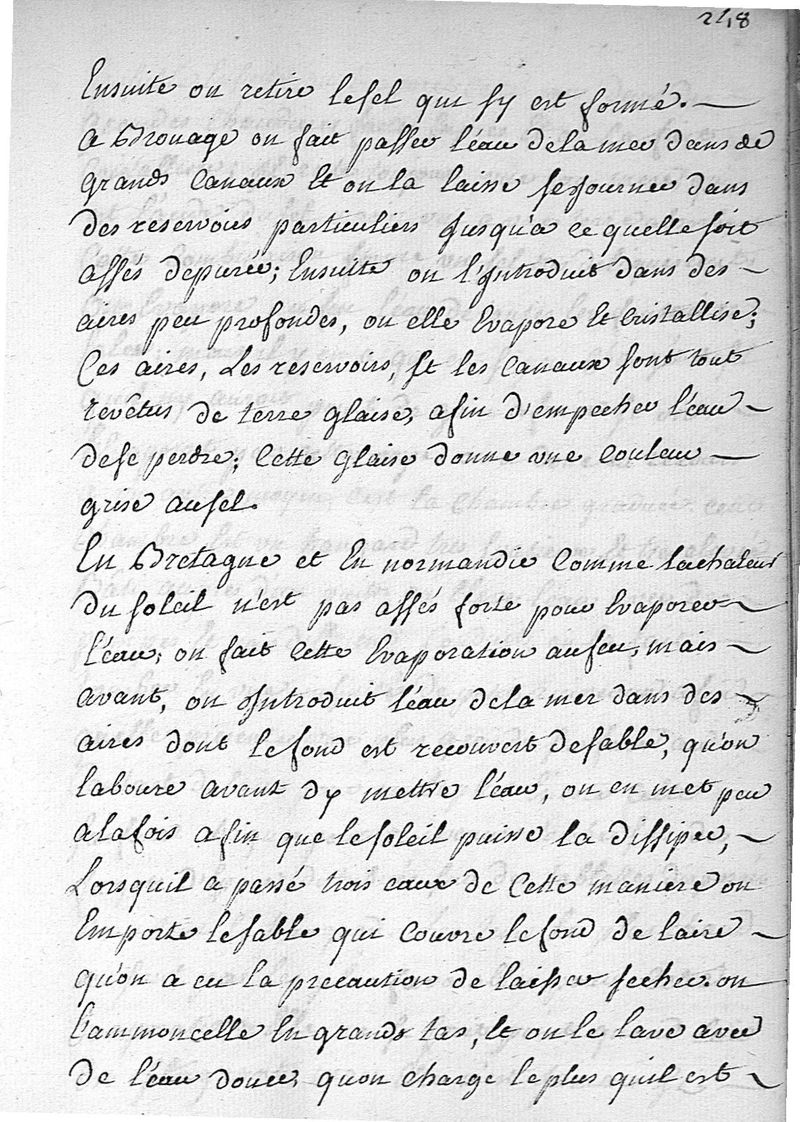 248
Ensuite on retire lesel qui sy est formé. —
a Brouage on fait passer l'éau delamer dans de
grands Canaux Et on la laisse sejourner dans
des reservoirs particuliers jusqu'a ce quelle soit
assés depurée; Ensuite on l'jntroduit dans des —
aires peu profondes, ou elle Evapore Et Cristallise;
Ces aires, Les reservoirs, Et les Canaux sont tout
revêtus de terre glaise, afin d'empecher l'éau —
dese perdre; Cette glaise donne une Couleur —
grise ausel.
En Bretagne et En normandie Comme lachaleur
du soleil n'est pas assés forte pour Evaporer —
l'éau, on fait Cette Evaporation aufeu, mais —
avant, on jntroduit l'éau delamer dans des —
aires dont lefond est recouvert desable, qu'on
laboure avant dy mettre l'éau, on en met peu
alafois afin que lesoleil puisse la dissiper, —
Lorsquil a passé trois eaux de Cette maniere on
Emporte lesable qui Couvre lefond de laire —
qu'on a eu la precaution de laisser secher. on
l'ammoncelle En grands tas, Et on le lave avec
de l'éau douce, quon charge leplus quil est —